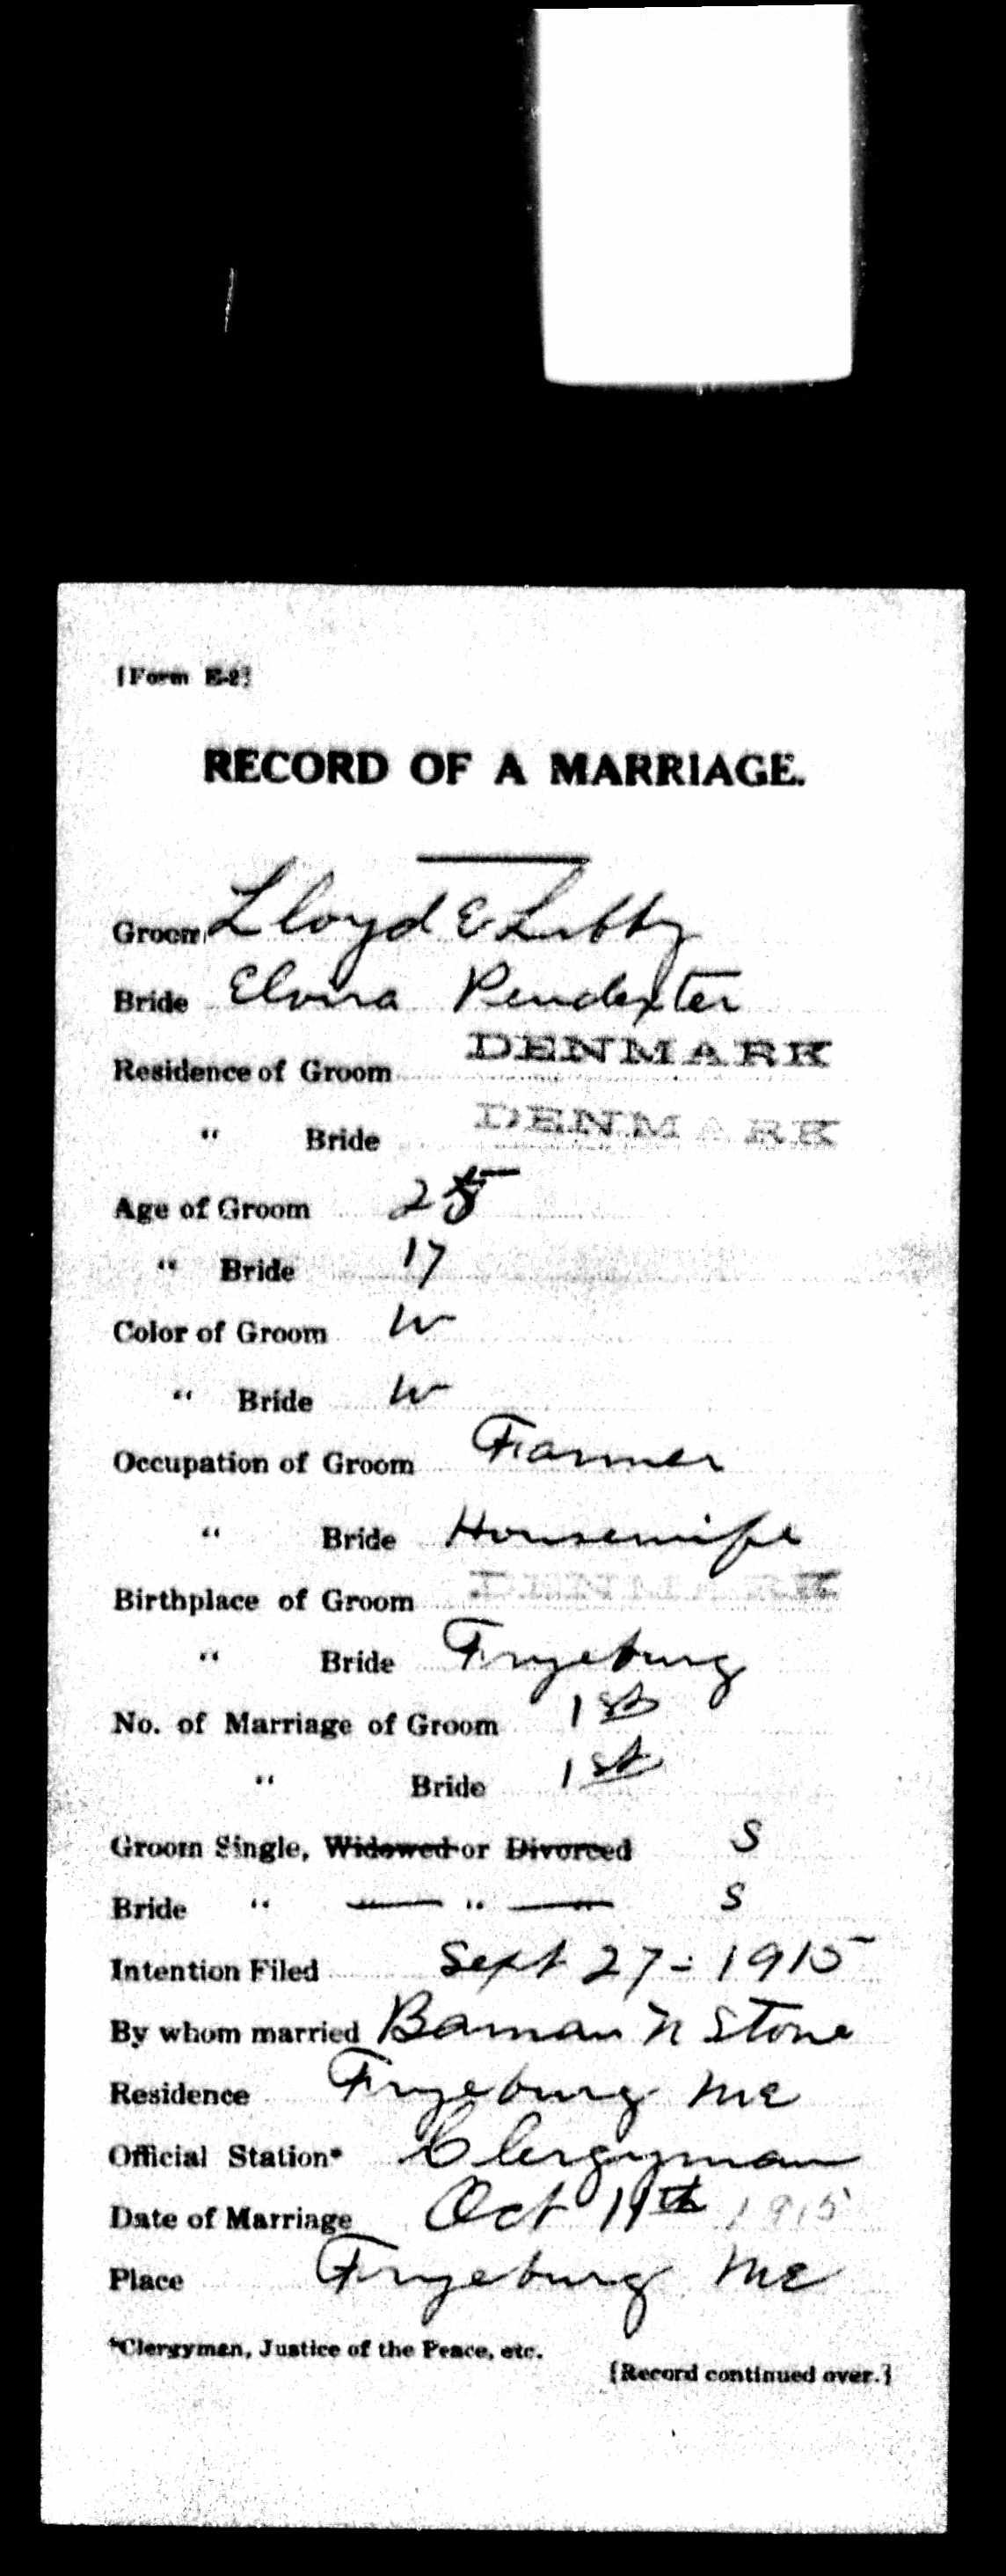 [Form E-2]
RECORD OF A MARRIAGE.
Groom Lloyd E Libby
Bride Elvira Pendexter
Residence of Groom DENMARK
" Bride DENMARK
Age of Groom 25
" Bride 17
Color of Groom W
" Bride W
Occupation of Groom Farmer
" Bride Housewife
Birthplace of Groom DENMARK
" Bride Fryeburg
No. of Marriage of Groom 1st
" Bride 1st
Groom Single, Widowed or Divorced S
Bride " " " S
Intention Filed Sept 27 - 1915
By whom married Baman N Stone
Residence Fryeburg Me
Official Station* Clergyman
Date of Marriage Oct 11th 1915
Place Fryeburg Me
*Clergyman, Justice of the Peace, etc.
[Record continued over.]